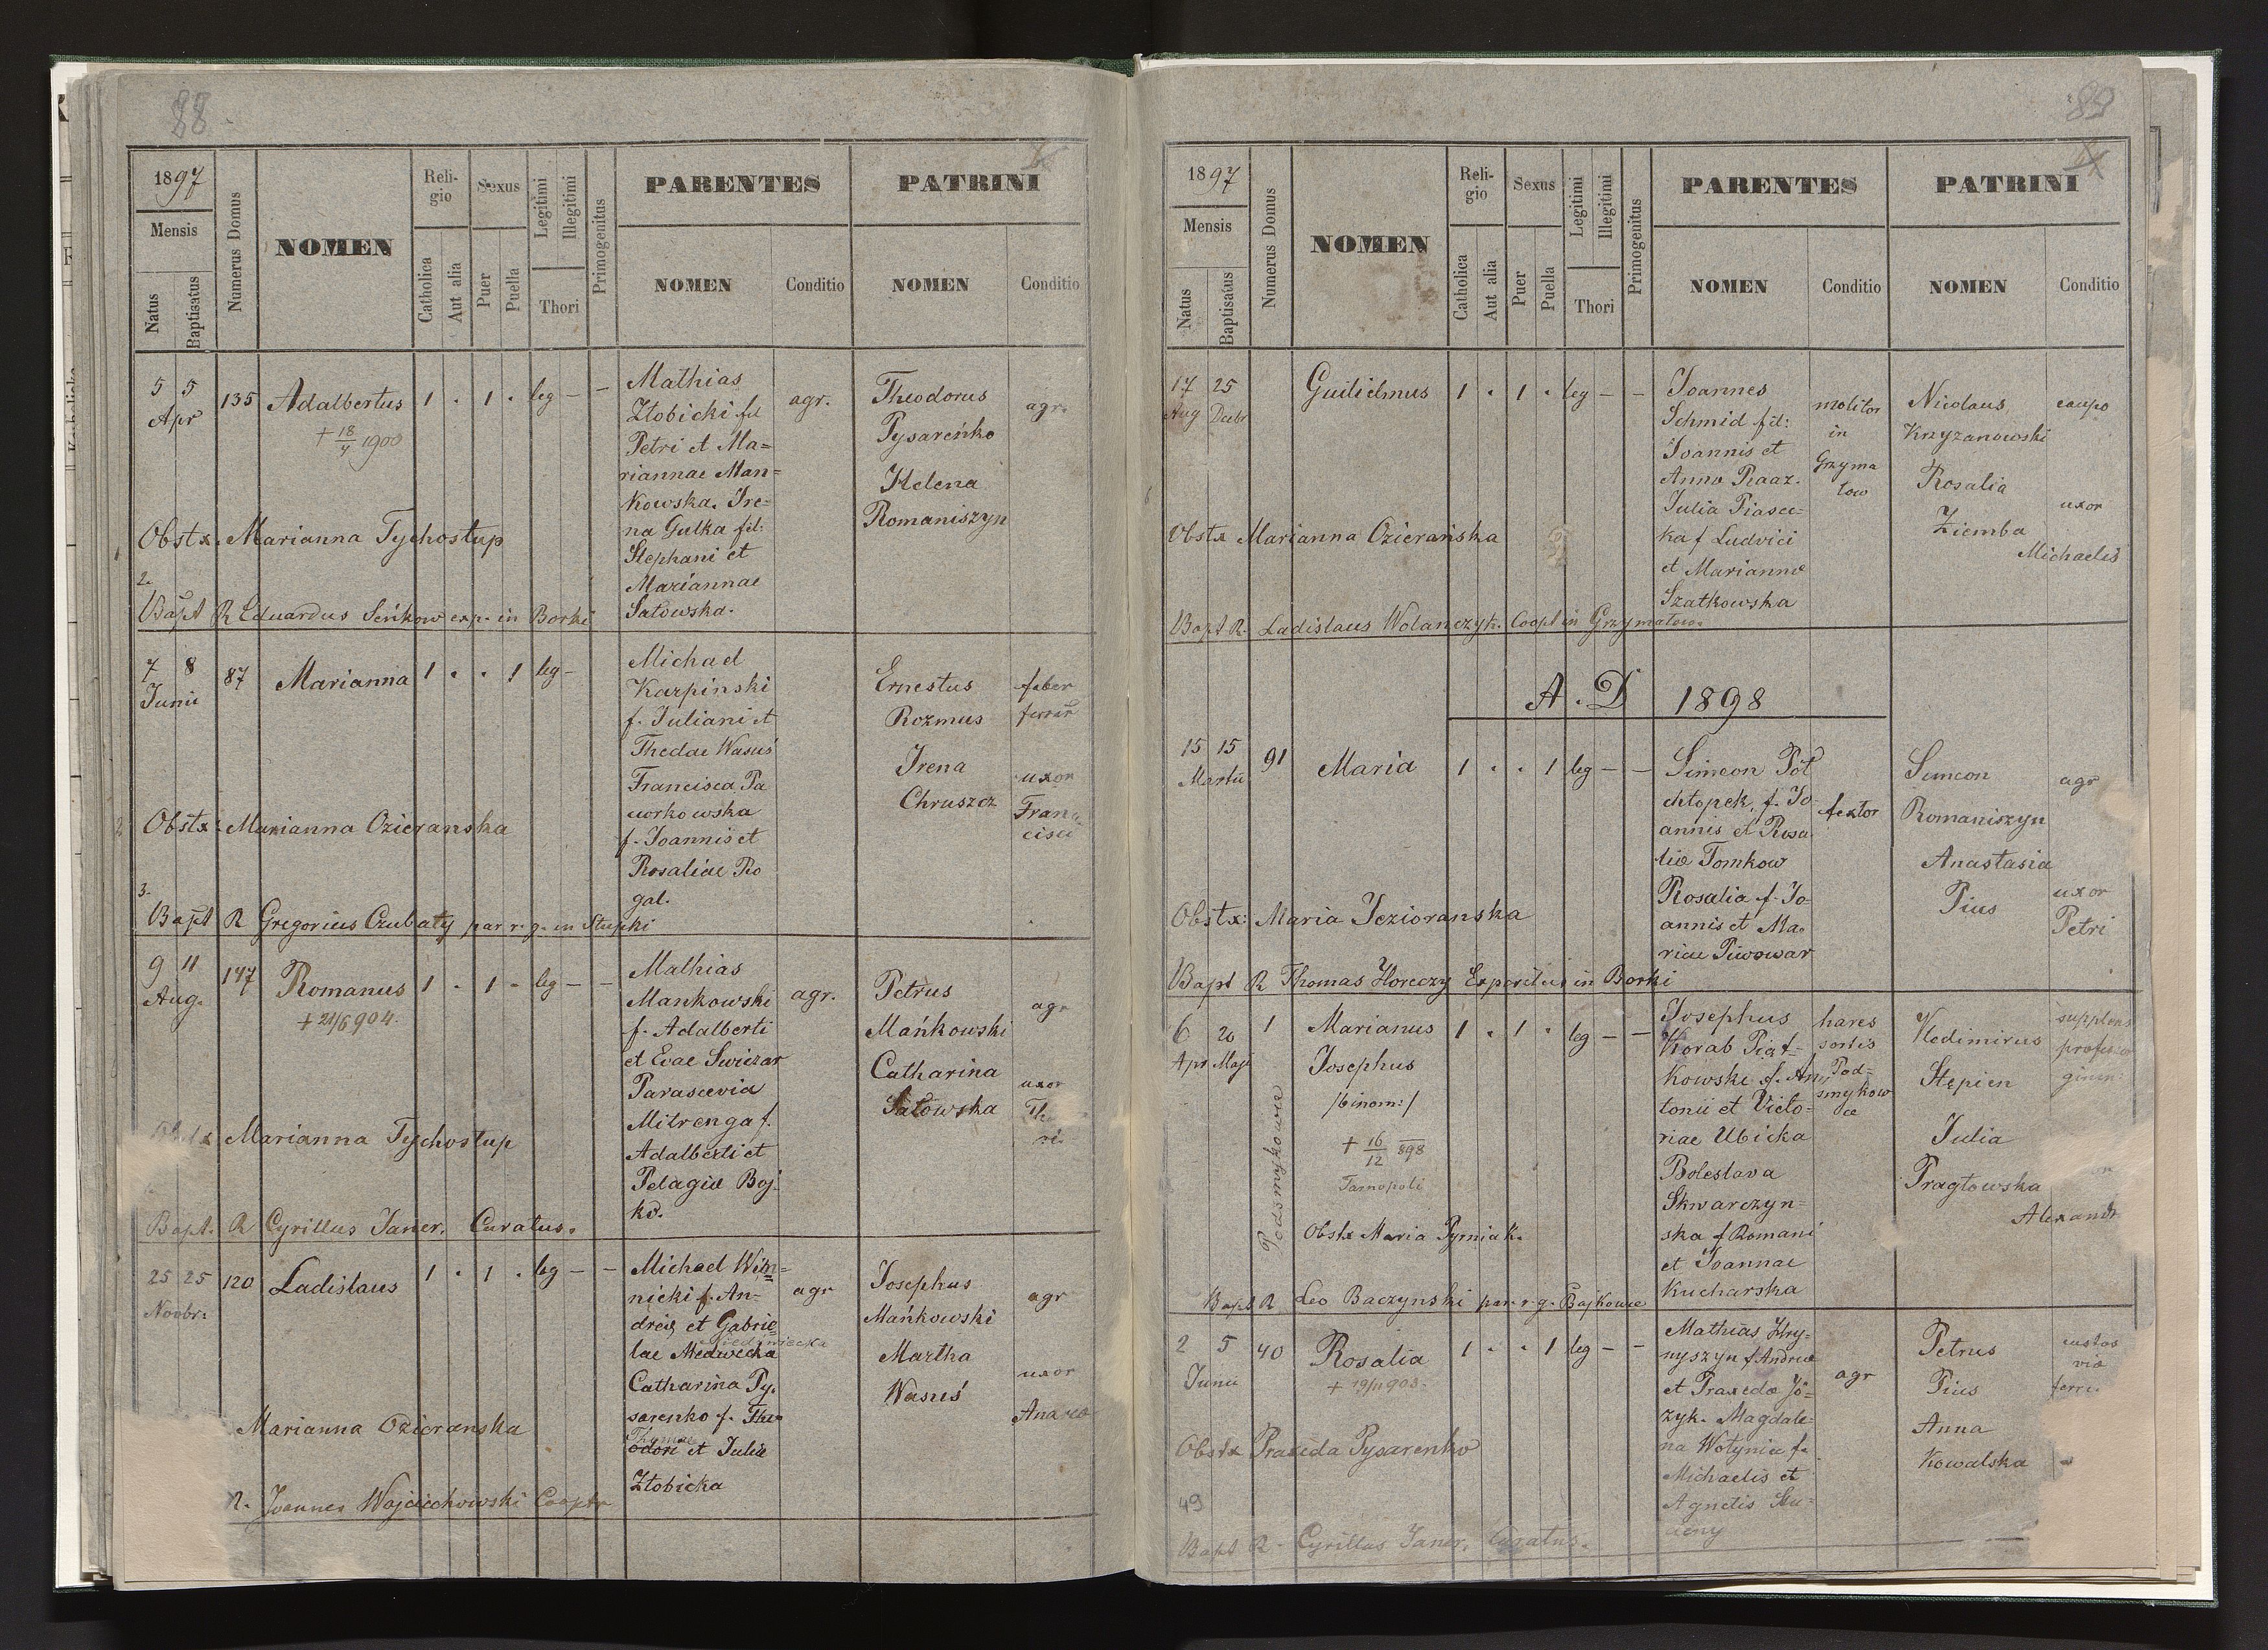 88
1897
Mensis
Natus
Baptisatus
Numerus Domus
NOMEN
Religio
Catholica
Aut alia
Sexus
Puer
Puella
Legitimi
Illegitimi
Thori
Primogenitus
PARENTES
NOMEN
Conditio
PATRINI
NOMEN
Conditio
5 5 135 Adalbertus 1 . 1 . leg – –
Apr
+ 18/4 1900
Mathias
Złobicki fil
Petri et Ma=
riannae Man=
kowska. Ire=
na Gulka fil:
Stephani et
Mariannae
Sałowska.
agr.
Theodorus
Pysareńko
Helena
Romaniszyn
agr.
Obstx. Marianna Tychostup
2.
Bapt R Eduardus Seńkow exp. in Borki
7 8 87 Marianna 1 . . 1 leg –
Junii
Michael
Karpinski
f. Juliani et
Thedae Wasuś
Francisca Pa
workowska
f. Joannis et
Rosaliae Ro
gal.
Ernestus
Rozmus
Irena
Chruszcz
faber
ferrar
uxor
Franc
cisci
Obstx: Marianna Ozieranska
3.
Bapt R Gregorius Czubaty par r. g. in Stupki
9 11 147 Romanus 1 . 1 . leg – –
Aug.
+ 21/6 904.
Mathias
Mankowski
f. Adalberti
et Evae Swiczar
Parascevia
Mitrenga f.
Adalberti et
Pelagiæ Boj-
ko.
agr.
Petrus
Mańkowski
Catharina
Sałowska
agr
uxor
Th
ri.
Obstx Marianna Tychostup
Bapt. R Cyrillus Janer. Curatus.
25 25 120 Ladislaus 1 . 1 . leg – –
Novbr.
Michael Win=
nicki f. An-
dreæ et Gabrie
lae Medwecka
Catharina Py.
sarenko f. The
odori et Juliæ
Złobicka
agr
Josephus
Mańkowski
Martha
Wasuś
agr
uxor
Andreæ
Marianna Ozieranska
R. Joannes Wojciechowski Cooptr
89
1897
Mensis
Natus
Baptisatus
Numerus Domus
NOMEN
Religio
Catholica
Aut alia
Sexus
Puer
Puella
Legitimi
Illegitimi
Thori
Primogenitus
PARENTES
NOMEN
Conditio
PATRINI
NOMEN
Conditio
17 25 Guilielmus 1 . 1 . leg – –
Aug Dcebr
Joannes
Schmid fil:
Joannis et
Anna Raaz.
Julia Piasec-
ka f Ludvici
et Mariannæ
Szatkowska
molitor
in
Grzyma
low
Nicolaus
Krzyzanowski
Rosalia
Ziemba
caupo
uxor
Michaelis
Obstx Marianna Ozierańska
Bapt R. Ladislaus Wolanczyk. Coopt in Grzymatow.
A. D 1898
15 15 91 Maria 1 . . 1 leg – –
Martii
Simeon Pół
chłopek, f. Jo
annis et Rosa
liæ Tomkow
Rosalia f. Jo-
annis et Ma.
riae Piwowar
textor
Simeon
Romaniszyn
Anastasia
Pius
agr
uxor
Petri
Obstx: Maria Jezioranska
Bapt R Thomas Horeczy Expositus in Borki
6 20 1 Marianus 1 . 1 . leg – –
Apr Maji
Podsmykowce
Josephus
/binom:/
+ 16/12 898
Tarnopoli
Josephus
Korab Piąt-
kowski f. An
tonii et Victo-
riae Ubicka
Boleslava
Skwarczyn=
ska f Romani
et Joannae
Kucharska
hares
sortis
Pod=
smykow
ce
Vlodimirus
Stepien
Julia
Pragłowska
supplens
profess
gimn.
Alexandr
Obstx Maria Pyrniak.
Bapt R Leo Baczynski par. r. g. Bajkowce
2 5 40 Rosalia 1 . . 1 leg – –
Junii
+ 19/11 903.
Mathias Hry-
nyszyn f Andreæ
et Praxeda Jó=
zyk. Magdale=
na Wołyniec f.
Michaelis et
Agnetis Stu-
agr
Petrus
Pius
Anna
Kowalska
custos
viæ
ferre.
Obstx Praxeda Pysarenko
49
Bapt R - Cyrillus Janer. Curatus.